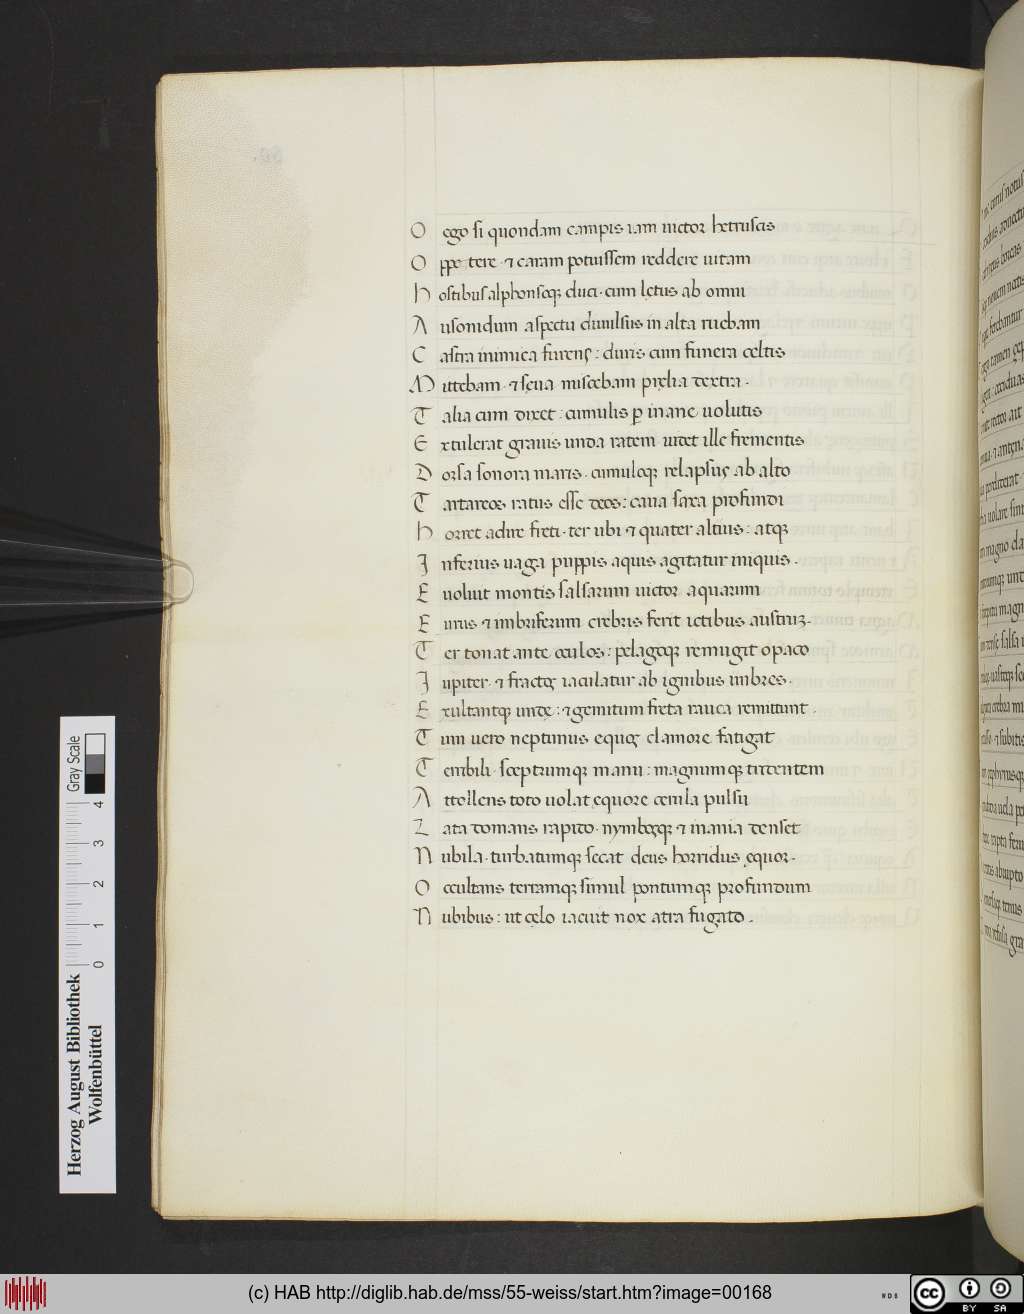 O ęgo si quondam campis iam uictor hetruscis
O ppetere · ⁊ caram potuissem reddere uitam
H ostibus alphonseq; duci · cum lętus ab omni
A usonidum aspectu diuulsus in alta ruebam
C astra inimica furens : duris cum funera celtis
M ittebam · ⁊ sęua miscebam pręlia dextra ·
T alia cum dixet : cumulis p inane uolutis
E xtulerat grauis unda ratem uidet ille frementis
D orsa sonora maris · cumuloq; relapsus ab alto
T artareos ratus esse deos : caua saxa profundi
H orret adire freti · ter ubi ⁊ quater altius : atq;
I nferius uaga puppis aquis agitatur iniquis ·
E uoluit montis salsarum uictor aquarum
E urus ⁊ imbriferum crebris ferit ictibus austrū ·
T er tonat ante oculos : pelagoq; remugit opaco
I upiter · ⁊ fractis iaculatur ab ignibus imbres ·
E xultantq; undę : ⁊ gemitum freta rauca remittunt ·
T um uero neptunus equos clamore fatigat
T erribili · sceptrumq; manu : magnumq; tridentem
A ttollens toto uolat ęquore cerula pulsu
L ata domans rapido · nymbosq; ⁊ inania denset
N ubila · turbatumq; secat deus horridus ęquor ·
O ccultans terramq; simul pontumq; profundum
N ubibus : ut cęlo iacuit nox atra fugato ·
Herzog August Bibliothek
Wolfenbüttel
Gray Scale
0 1 2 3 4
(c) HAB http://diglib.hab.de/mss/55-weiss/start.htm?image=00168
cc BY SA